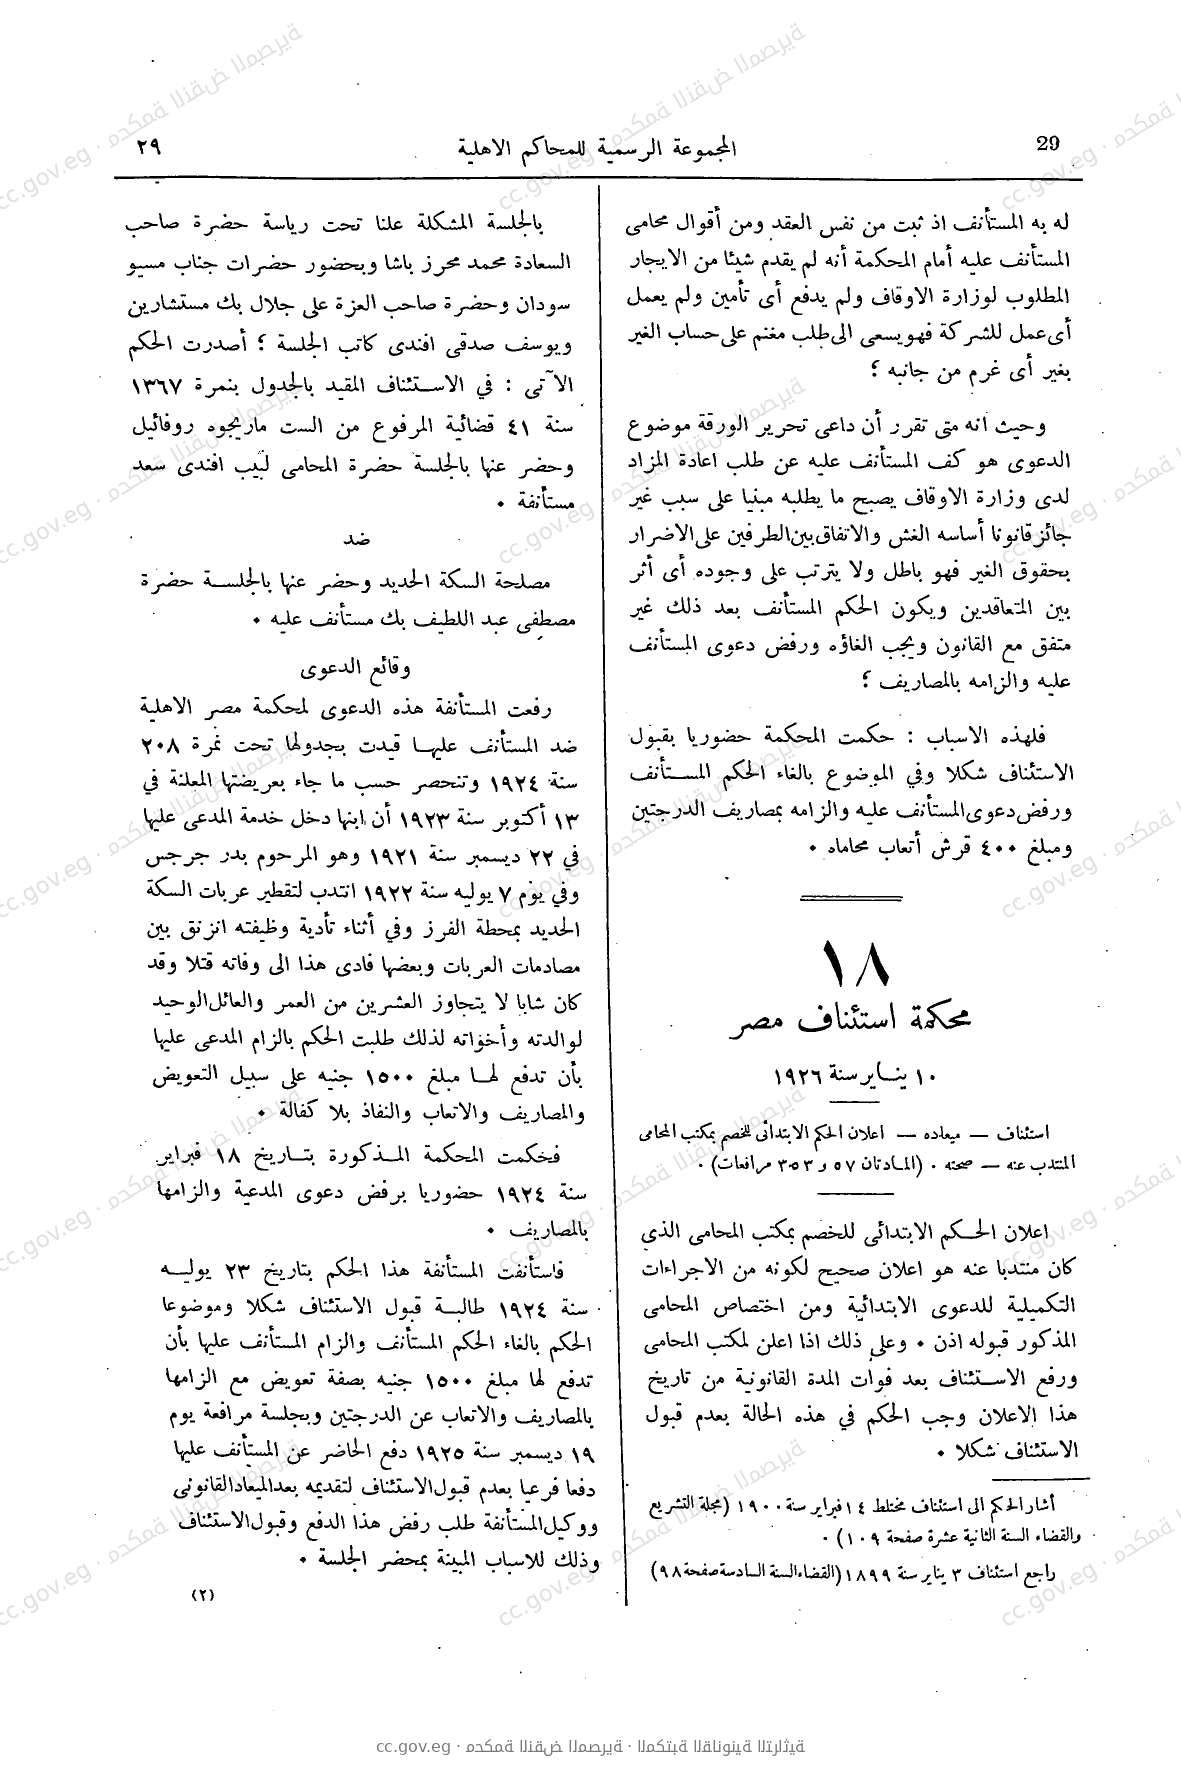 29
المجموعة الرسمية للمحاكم الاهلية
٢٩
له به المستأنف اذ ثبت من نفس العقد ومن أقوال محامى
المستأنف عليه أمام المحكمة أنه لم يقدم شيئا من الايجار
المطلوب لوزارة الاوقاف ولم يدفع أى تأمين ولم يعمل
أى عمل للشركة فهو يسعى الى طلب مغنم على حساب الغير
بغير أى غرم من جانبه ؛
وحيث انه متى تقرر أن داعى تحرير الورقة موضوع
الدعوى هو كف المستأنف عليه عن طلب اعادة المزاد
لدى وزارة الاوقاف يصبح ما يطلبه مبنيا على سبب غير
جائز قانونا أساسه الغش والاتفاق بين الطرفين على الاضرار
بحقوق الغير فهو باطل ولا يترتب على وجوده أى أثر
بين المتعاقدين ويكون الحكم المستأنف بعد ذلك غير
متفق مع القانون ويجب الغاؤه ورفض دعوى المستأنف
عليه والزامه بالمصاريف ؛
فلهذه الاسباب : حكمت المحكمة حضوريا بقبول
الاستئناف شكلا وفي الموضوع بالغاء الحكم المستأنف
ورفض دعوى المستأنف عليه والزامه بمصاريف الدرجتين
ومبلغ ٤٠٠ قرش أتعاب محاماه ٠
١٨
محكمة استئناف مصر
١٠ يناير سنة ١٩٢٦
استئناف — ميعاده — اعلان الحكم الابتدائى للخصم بمكتب المحامى
المنتدب عنه — صحته ٠ (المادتان ٥٧ و ٣٥٣ مرافعات) ٠
اعلان الحكم الابتدائى للخصم بمكتب المحامى الذي
كان منتدبا عنه هو اعلان صحيح لكونه من الاجراءات
التكميلية للدعوى الابتدائية ومن اختصاص المحامى
المذكور قبوله اذن ٠ وعلى ذلك اذا اعلن لمكتب المحامى
ورفع الاستئناف بعد فوات المدة القانونية من تاريخ
هذا الاعلان وجب الحكم في هذه الحالة بعدم قبول
الاستئناف شكلا ٠
أشار الحكم الى استئناف مختلط ١٤ فبراير سنة ١٩٠٠ (مجلة التشريع
والقضاء السنة الثانية عشرة صفحة ١٠٩) ٠
راجع استئناف ٣ يناير سنة ١٨٩٩ (القضاء السنة السادسة صفحة ٩٨)
بالجلسة المشكلة علنا تحت رياسة حضرة صاحب
السعادة محمد محرز باشا وبحضور حضرات جناب مسيو
سودان وحضرة صاحب العزة على جلال بك مستشارين
ويوسف صدقى افندى كاتب الجلسة ؛ أصدرت الحكم
الآتى : في الاستئناف المقيد بالجدول بنمرة ١٣٦٧
سنة ٤١ قضائية المرفوع من الست ماريجوه روفائيل
وحضر عنها بالجلسة حضرة المحامى لبيب افندى سعد
مستأنفة ٠
ضد
مصلحة السكة الحديد وحضر عنها بالجلسة حضرة
مصطفى عبد اللطيف بك مستأنف عليه ٠
وقائع الدعوى
رفعت المستأنفة هذه الدعوى لمحكمة مصر الاهلية
ضد المستأنف عليها قيدت بجدولها تحت نمرة ٢٠٨
سنة ١٩٢٤ وتنحصر حسب ما جاء بعريضتها المعلنة في
١٣ أكتوبر سنة ١٩٢٣ أن ابنها دخل خدمة المدعى عليها
في ٢٢ ديسمبر سنة ١٩٢١ وهو المرحوم بدر جرجس
وفي يوم ٧ يوليه سنة ١٩٢٢ انتدب لتقطير عربات السكة
الحديد بمحطة الفرز وفي أثناء تأدية وظيفته انزنق بين
مصادمات العربات وبعضها فادى هذا الى وفاته قتلا وقد
كان شابا لا يتجاوز العشرين من العمر والعائل الوحيد
لوالدته وأخواته لذلك طلبت الحكم بالزام المدعى عليها
بأن تدفع لها مبلغ ١٥٠٠ جنيه على سبيل التعويض
والمصاريف والاتعاب والنفاذ بلا كفالة ٠
فحكمت المحكمة المذكورة بتاريخ ١٨ فبراير
سنة ١٩٢٤ حضوريا برفض دعوى المدعية والزامها
بالمصاريف ٠
فاستأنفت المستأنفة هذا الحكم بتاريخ ٢٣ يوليه
سنة ١٩٢٤ طالبة قبول الاستئناف شكلا وموضوعا
الحكم بالغاء الحكم المستأنف والزام المستأنف عليها بأن
تدفع لها مبلغ ١٥٠٠ جنيه بصفة تعويض مع الزامها
بالمصاريف والاتعاب عن الدرجتين وبجلسة مرافعة يوم
١٩ ديسمبر سنة ١٩٢٥ دفع الحاضر عن المستأنف عليها
دفعا فرعيا بعدم قبول الاستئناف لتقديمه بعد الميعاد القانونى
ووكيل المستأنفة طلب رفض هذا الدفع وقبول الاستئناف
وذلك للاسباب المبينة بمحضر الجلسة ٠
(٢)
cc.gov.eg · محكمة النقض المصرية · المكتبة القانونية التراثية